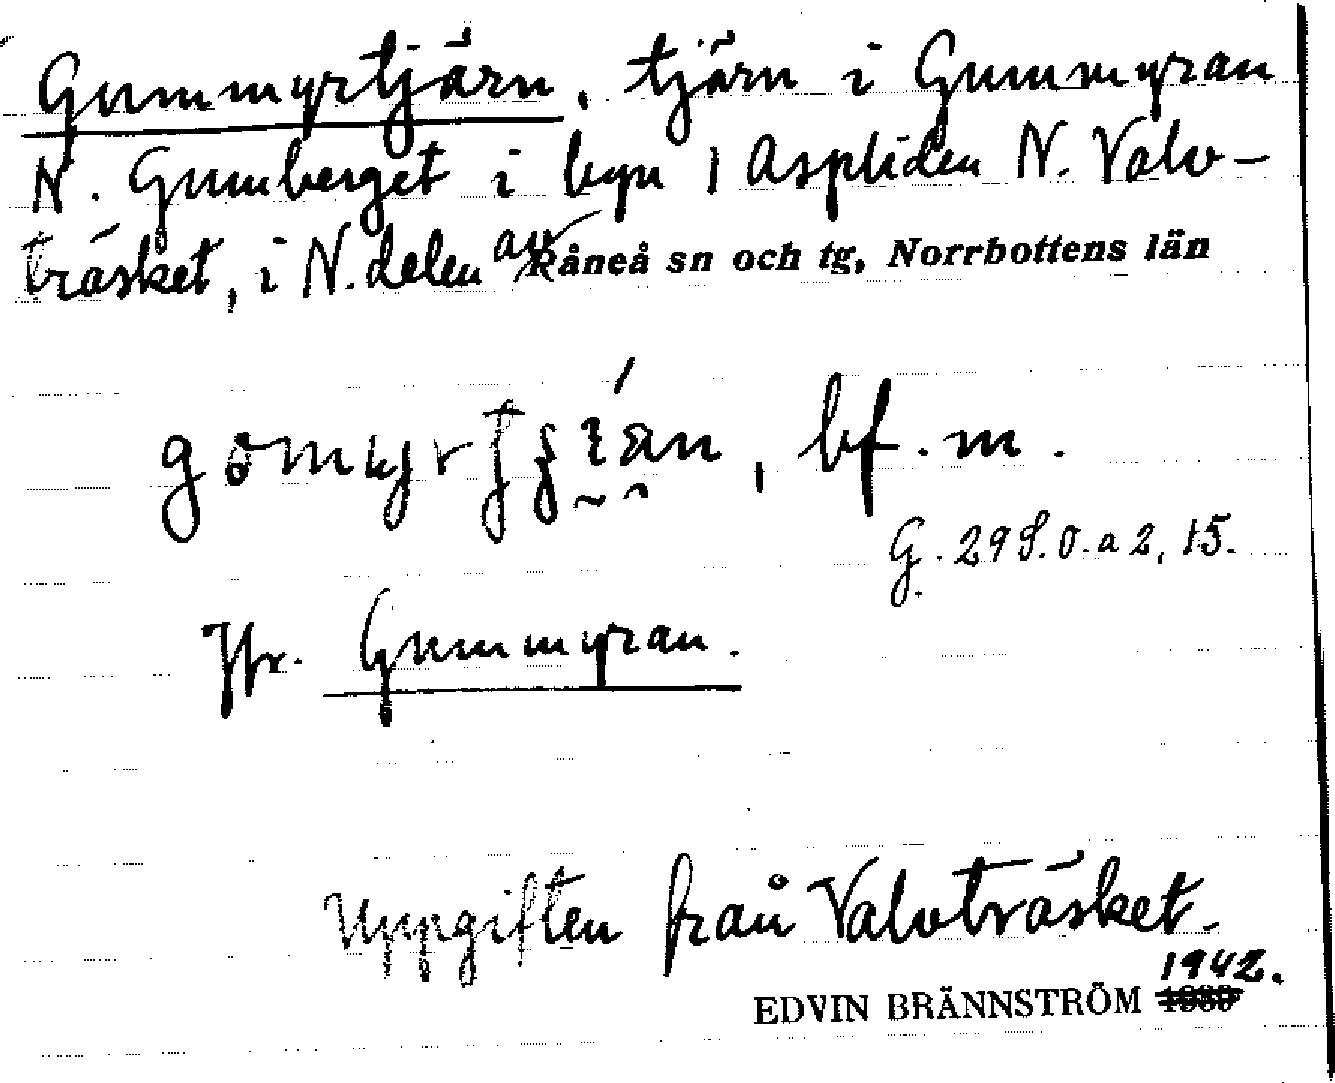 Gummyrtjärn, tjärn i Gummyran
N. Gumberget i byn 1 Aspliden N. Valv-
träsket, i N. delen av Råneå sn och tg, Norrbottens län
bf. m.
G. 298.0.a 2, 15.
Jfr. Gummyran.
Uppgiften från Valvträsket.
1942.
EDVIN BRÄNNSTRÖM